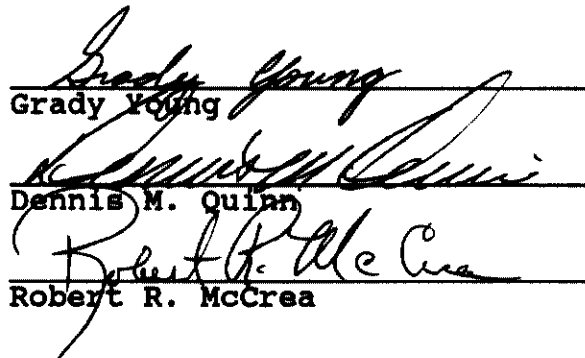 Grady Young
Grady Young
Dennis M Quinn
Dennis M. Quinn
Robert R. McCrea
Robert R. McCrea